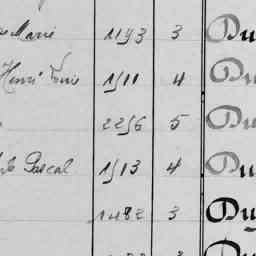 Marie 1193 3 Du
Henri Louis 1511 4 Du
2256 5 Du
Pascal 1513 4 Du
1482 3 Du
3 Du